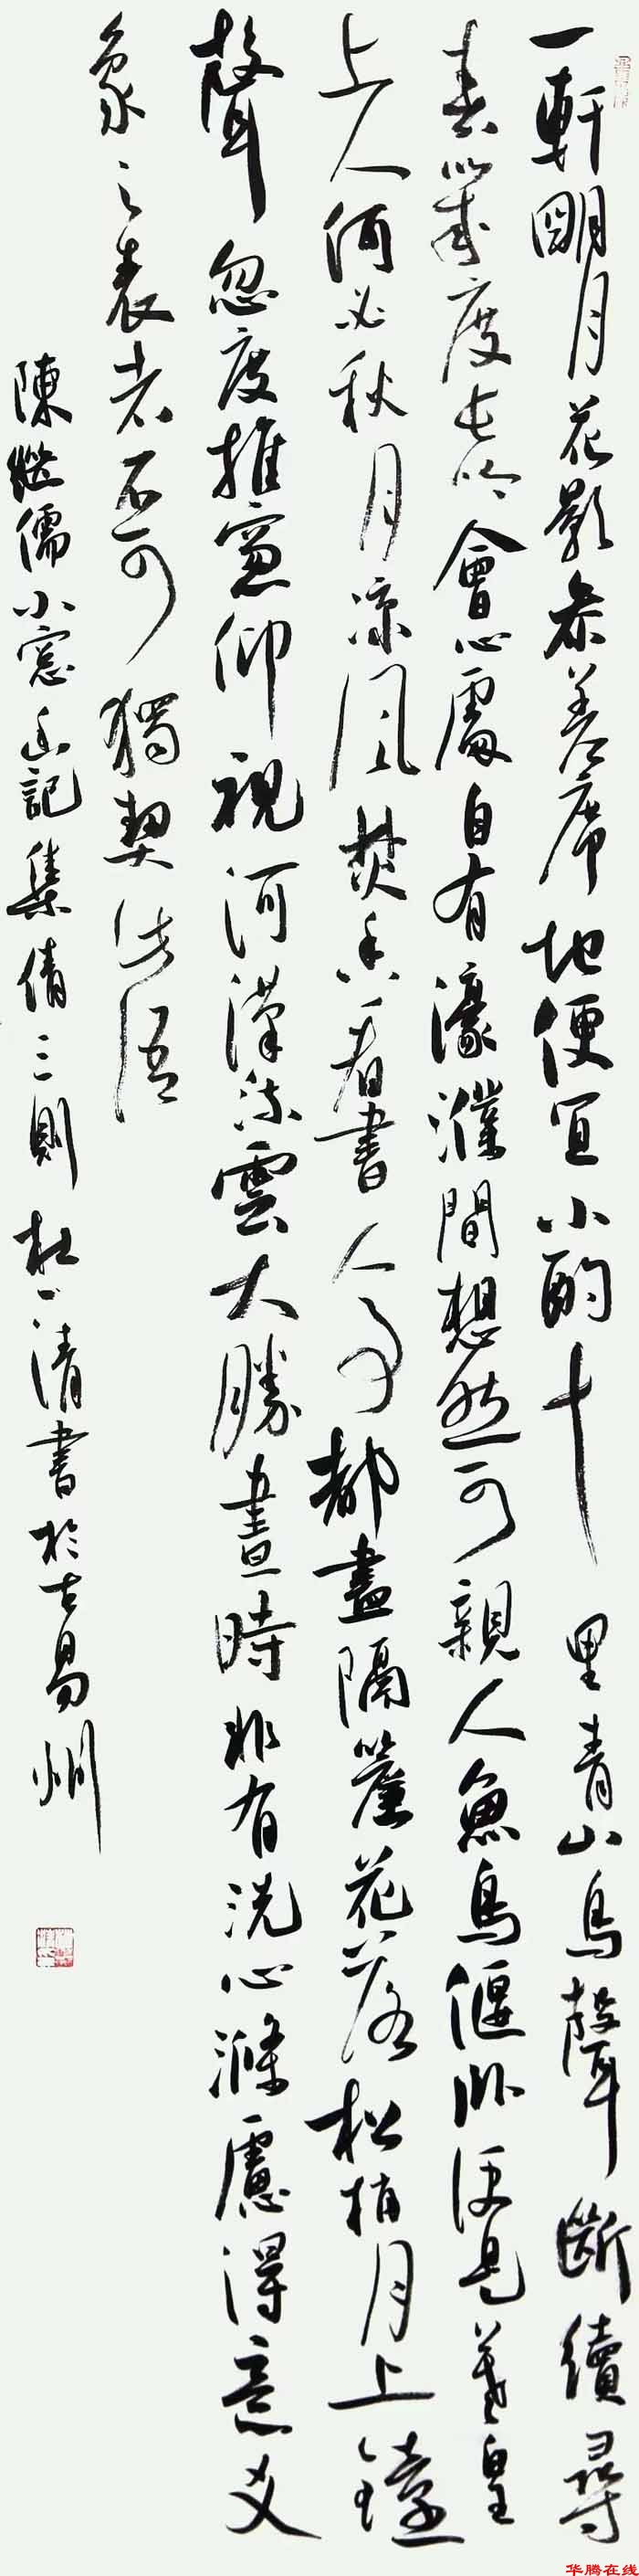 一軒明月花影叅差席地便宜小酌十里青山鳥聲斷續尋
春幾度長吟會心處自有濠濮間想然可親人魚鳥偃卧便是羲皇
上人何必秋月凉風焚香看書人事都盡隔簾花落松梢月上鐘
聲忽度推窻仰視河漢流雲大勝晝時非有洗心滌慮得意爻
象之表者不可獨契此語
陳繼儒小窻幽記集倩三則 杜一清書於古易州
华腾在线